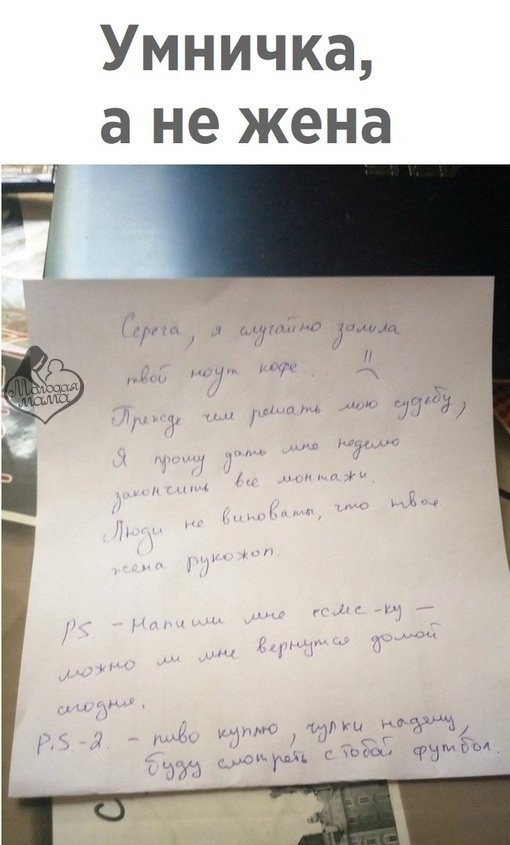 Умничка,
а не жена
Серега, я случайно залила
твой ноут кофе..
Прежде чем решать мою судьбу,
Я прошу дать мне неделю
закончить все монтажи.
Люди не виноваты, что твоя
жена рукожоп.
PS - Напиши мне смс-ку -
можно ли мне вернутся домой
сегодня.
P.S.-2. - пиво куплю, чулки надену,
буду смотреть с тобой футбол.
Молодая
мама